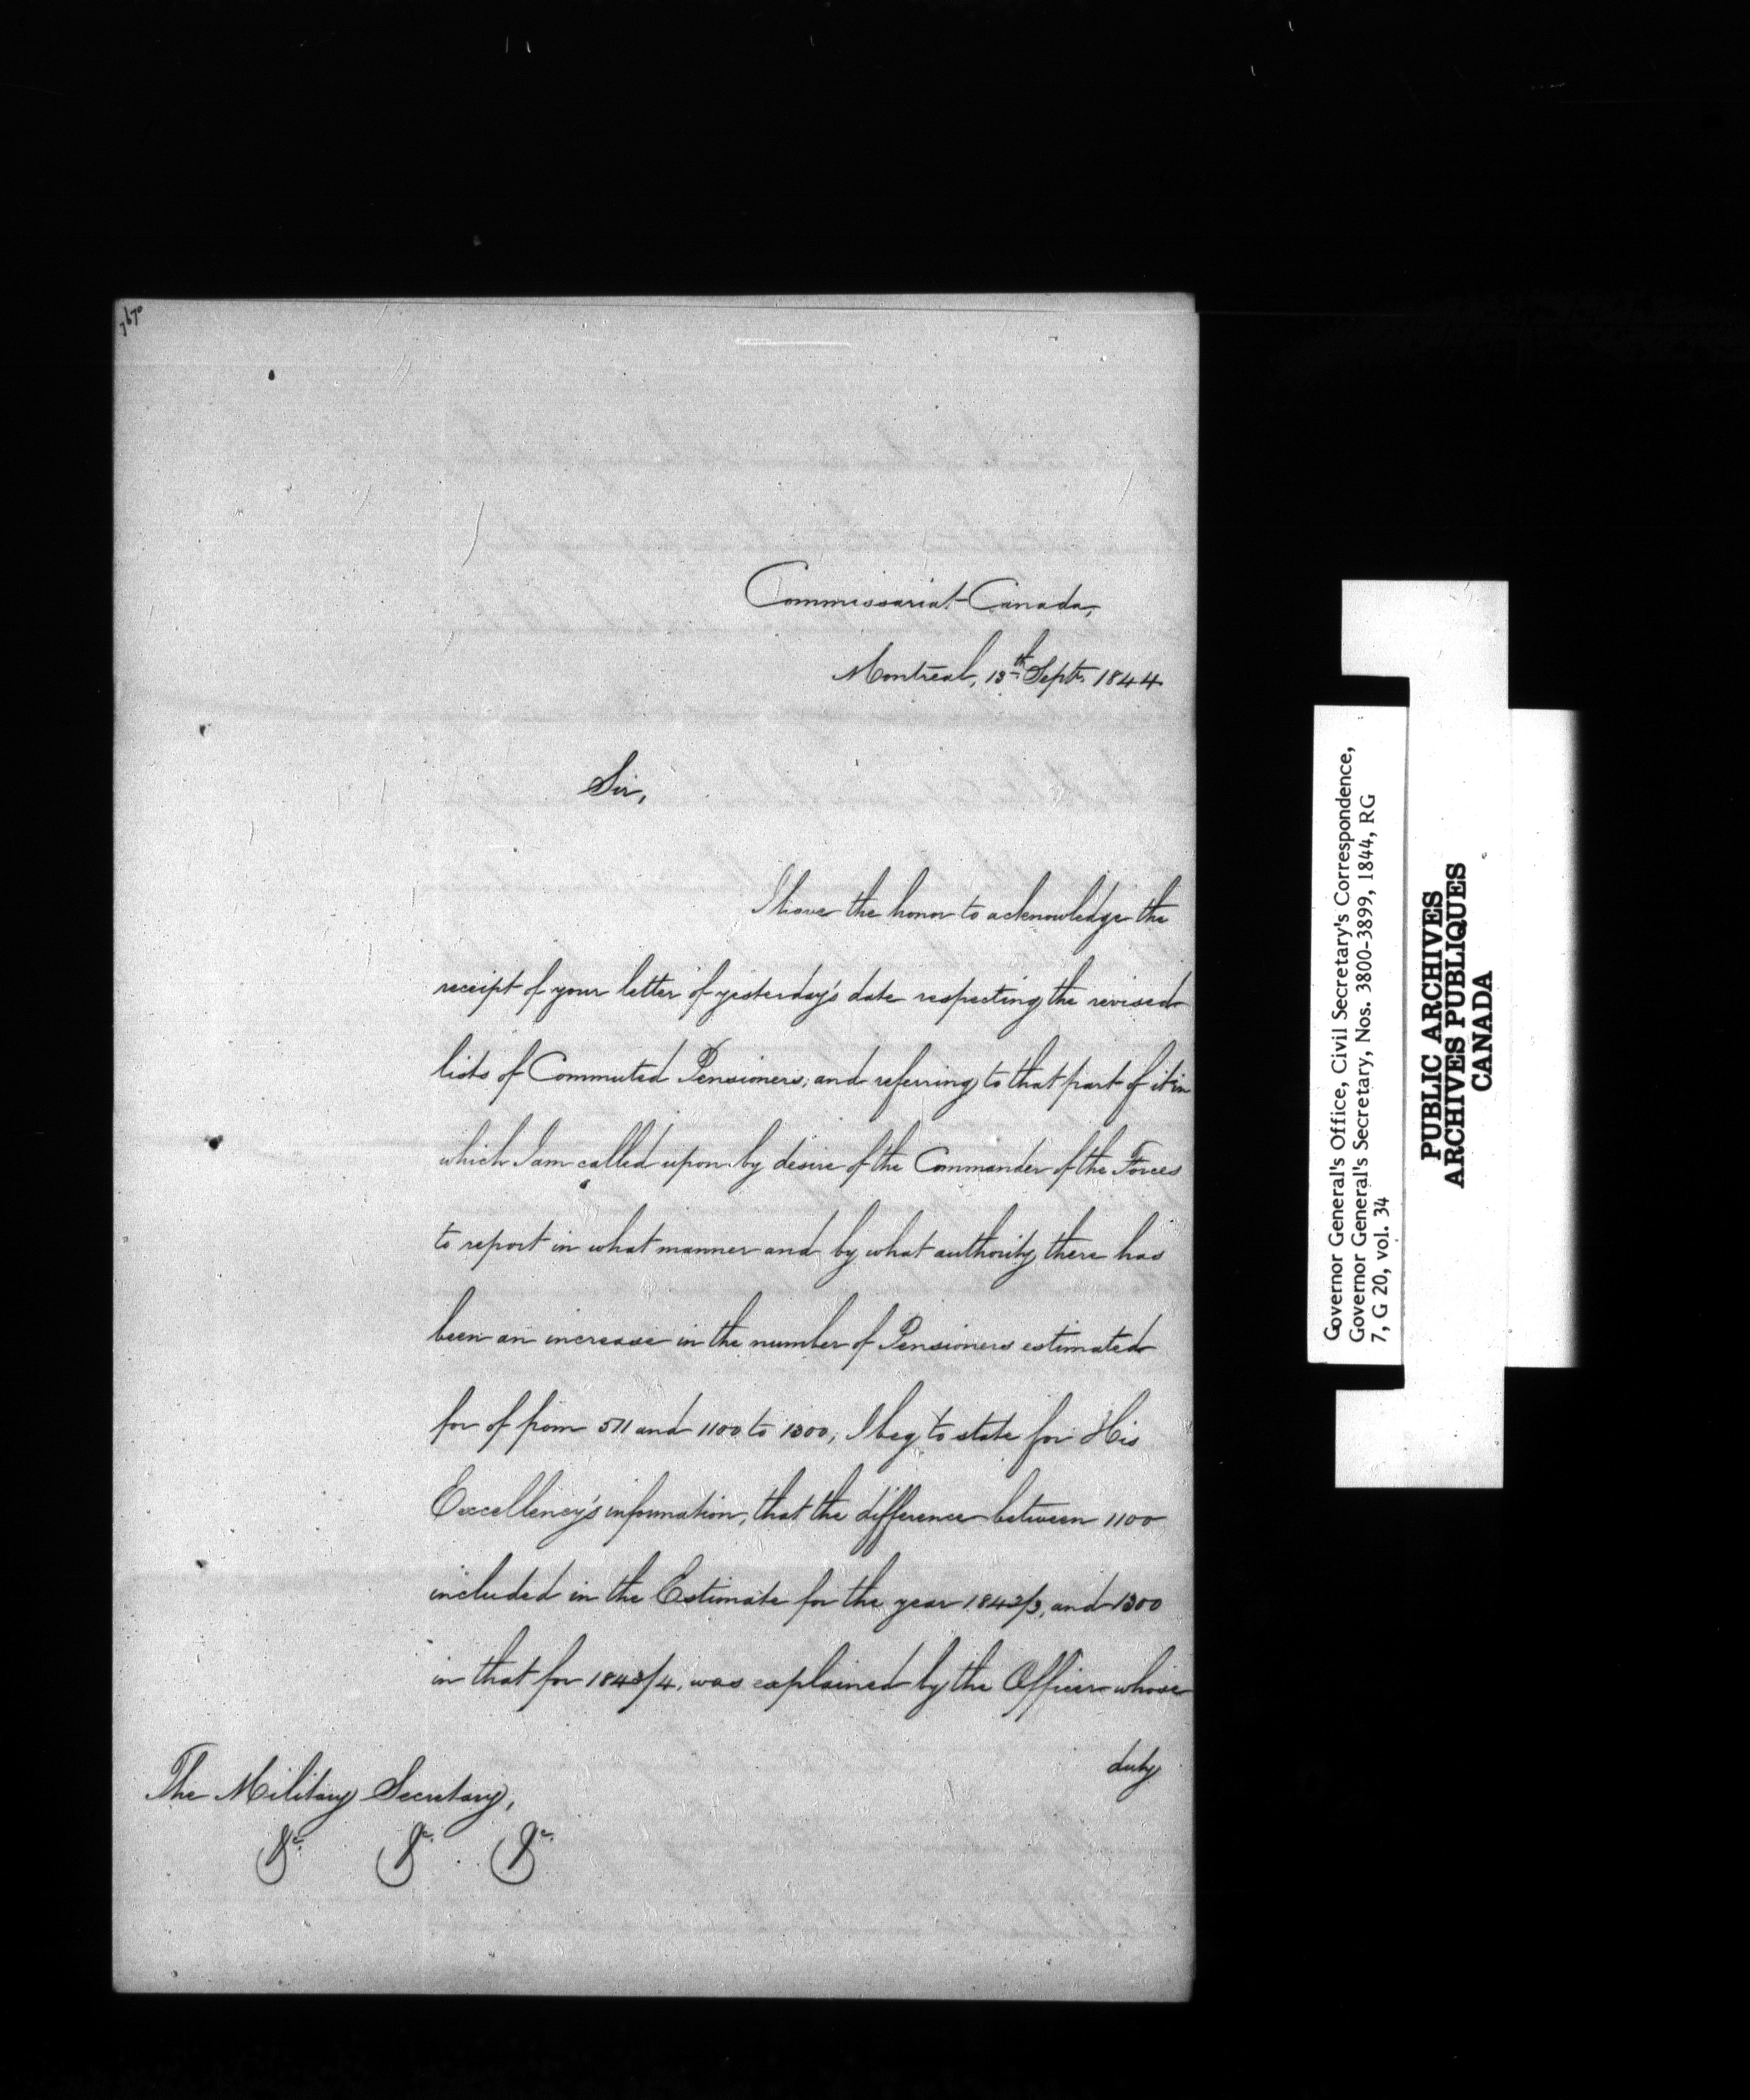 7670
Commissariat Canada,
Montreal, 13th Septr. 1844
Sir,
I have the honor to acknowledge the
receipt of your letter of yesterday's date respecting the revised
lists of Commuted Pensioners, and referring to that part of it in
which I am called upon by desire of the Commander of the Forces
to report in what manner and by what authority there has
been an increase in the number of Pensioners estimated
for of from 511 and 1100 to 1300, I beg to state for His
Excellency's information, that the difference between 1100
included in the Estimate for the year 1842/3, and 1300
in that for 1843/4, was explained by the Officer whose
duty
The Military Secretary,
&c. &c. &c.
Governor General's Office, Civil Secretary's Correspondence,
Governor General's Secretary, Nos. 3800-3899, 1844, RG
7, G 20, vol. 34
PUBLIC ARCHIVES
ARCHIVES PUBLIQUES
CANADA